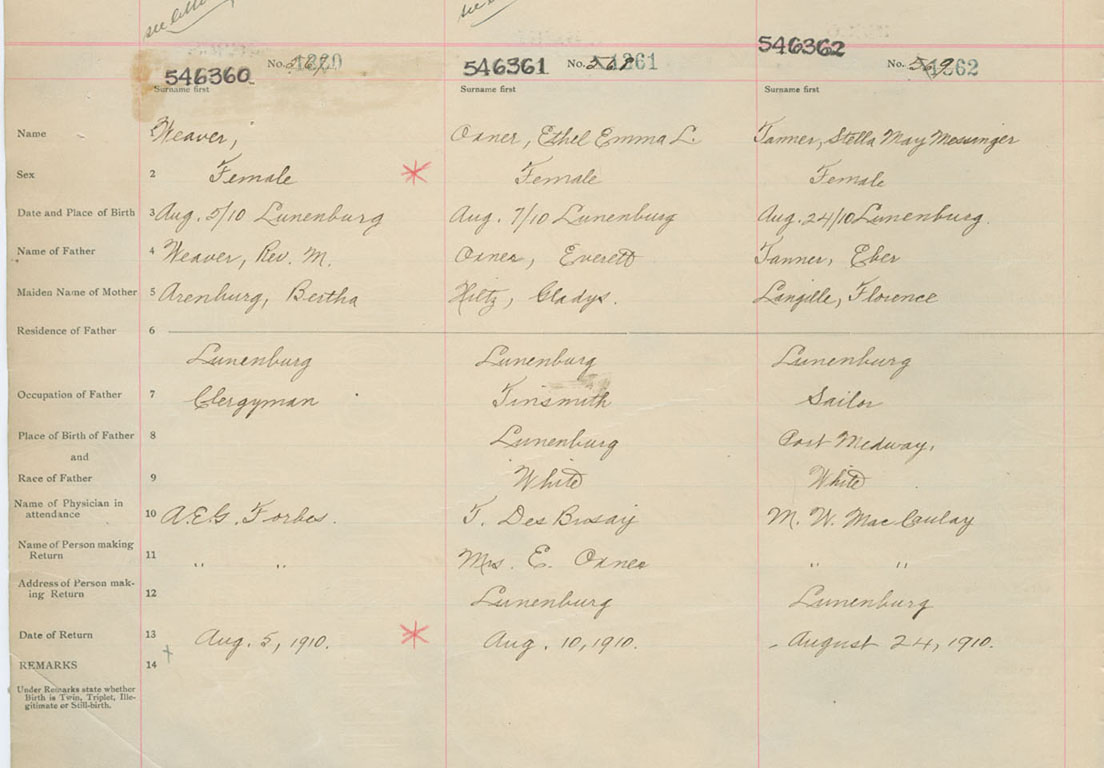 546360 No.
546361 No. 1261
546362 No. 569 1262
Surname first Surname first Surname first
Name 1 Weaver, Oxner, Ethel Emma L. Tanner, Stella May Messinger
Sex 2 Female Female Female
Date and Place of Birth 3 Aug. 5/10 Lunenburg Aug. 7/10 Lunenburg Aug. 24/10 Lunenburg.
Name of Father 4 Weaver, Rev. M. Oxner, Everett Tanner, Eber
Maiden Name of Mother 5 Arenburg, Bertha Hiltz, Gladys. Langille, Florence
Residence of Father 6
Lunenburg Lunenburg Lunenburg
Occupation of Father 7 Clergyman Tinsmith Sailor
Place of Birth of Father 8 Lunenburg Port Medway,
and
Race of Father 9 White White
Name of Physician in
attendance 10 A.E.G. Forbes. T. Des Brisay M. W. MacAulay
Name of Person making
Return 11 " " Mrs. E. Oxner " "
Address of Person mak-
ing Return 12 Lunenburg Lunenburg
Date of Return 13 Aug. 5, 1910. Aug. 10, 1910. August 24, 1910.
REMARKS 14
Under Remarks state whether
Birth is Twin, Triplet, Ille-
gitimate or Still-birth.